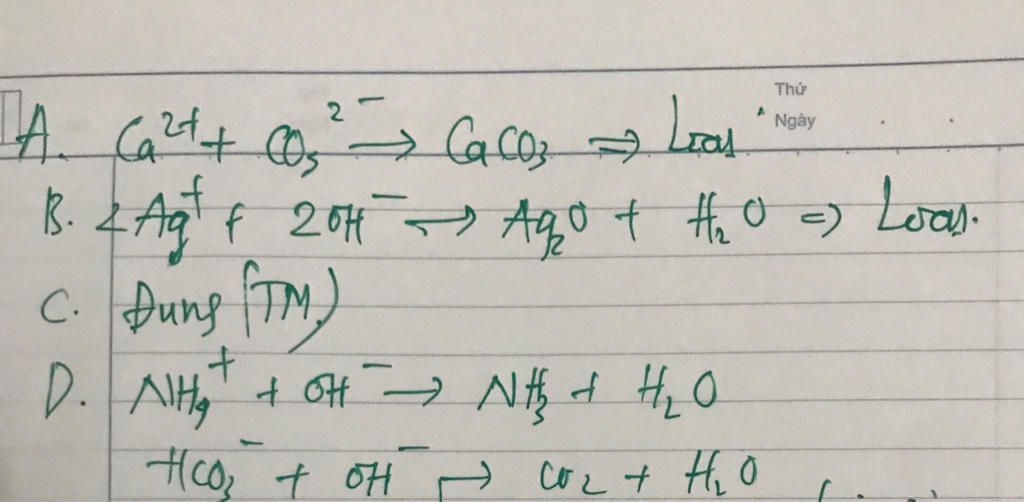 Thứ
Ngày
A. Ca²⁺ + CO₃²⁻ → CaCO₃ ⇒ Loại
B. 2Ag⁺ + 2OH⁻ → Ag₂O + H₂O ⇒ Loại.
C. Đúng (TM)
D. NH₄⁺ + OH⁻ → NH₃ + H₂O
HCO₃⁻ + OH⁻ → CO₂ + H₂O